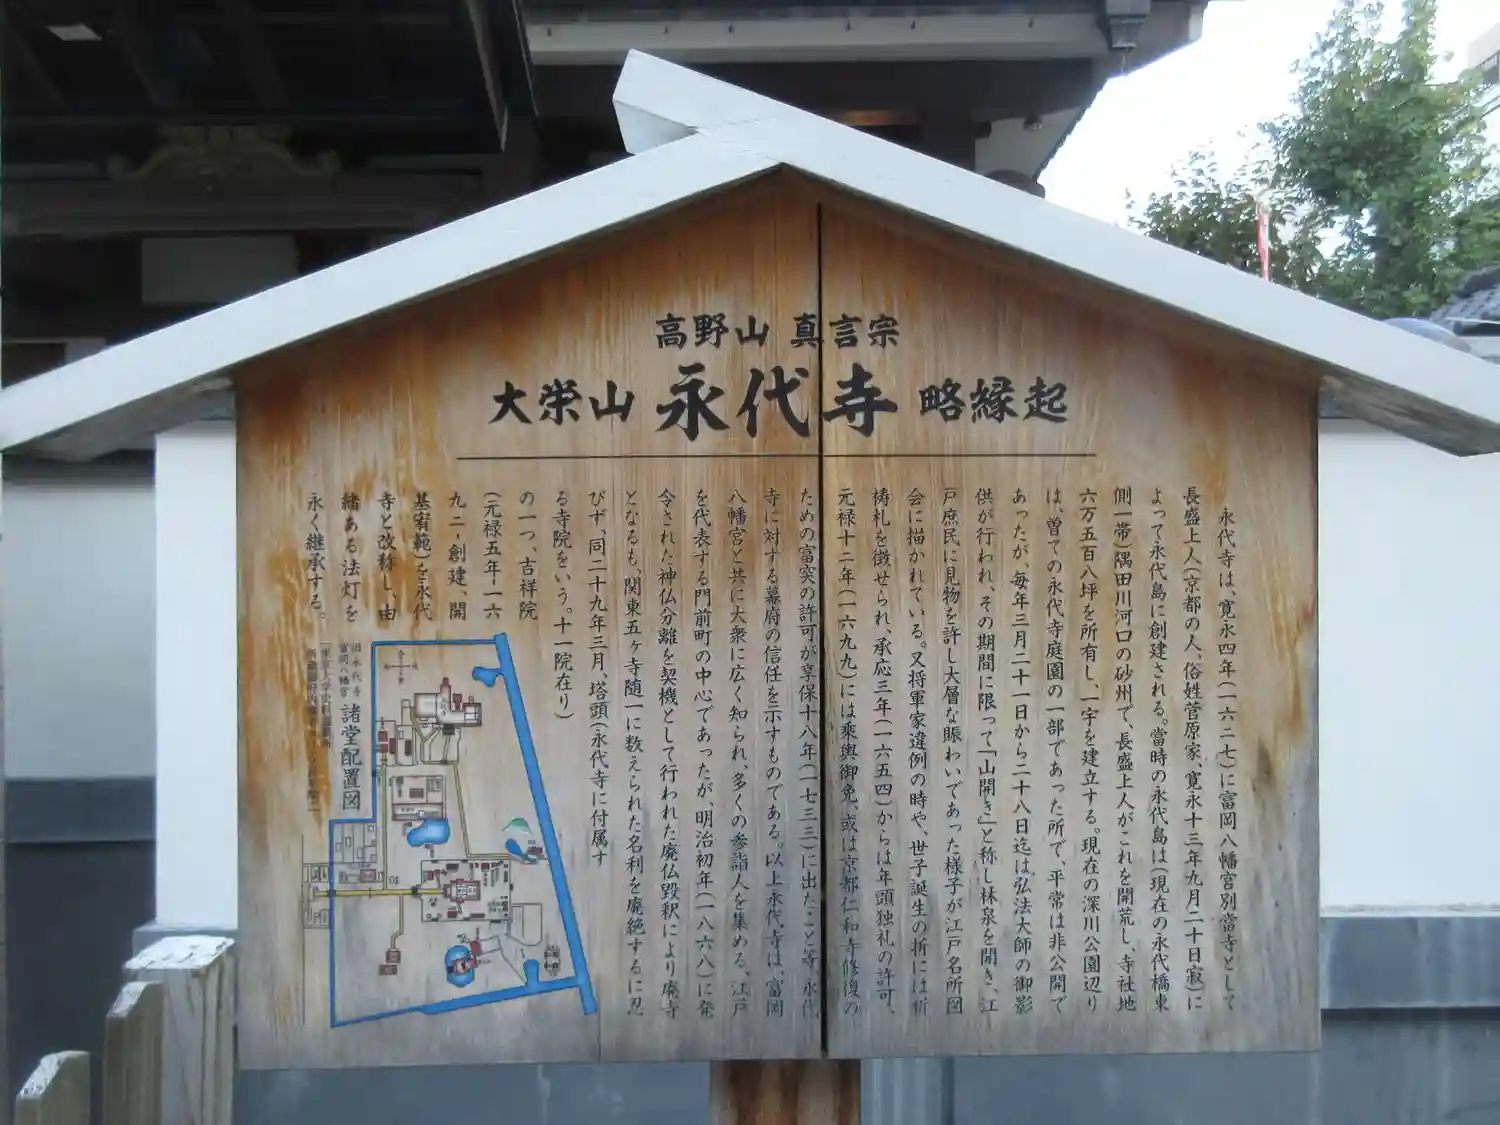 高野山 真言宗
大栄山 永代寺 略縁起
永代寺は、寛永四年(一六二七)に富岡八幡宮別當寺として
長盛上人(京都の人、俗姓菅原家、寛永十三年九月二十日寂)に
よって永代島に創建される。當時の永代島は(現在の永代橋東
側一帯)隅田川河口の砂州で、長盛上人がこれを開荒し、寺社地
六万五百八坪を所有し、一宇を建立する。現在の深川公園辺り
は、曽ての永代寺庭園の一部であった所で、平常は非公開で
あったが、毎年三月二十一日から二十八日迄は弘法大師の御影
供が行われ、その期間に限って「山開き」と称し林泉を開き、江
戸庶民に見物を許し大層な賑わいであった様子が江戸名所図
会に描かれている。又将軍家違例の時や、世子誕生の折には祈
祷札を徴せられ、承応三年(一六五四)からは年頭独礼の許可、
元禄十二年(一六九九)には乘輿御免、或は京都仁和寺修復の
ための富突の許可が享保十八年(一七三三)に出たこと等、永代
寺に対する幕府の信任を示すものである。以上永代寺は、富岡
八幡宮と共に大衆に広く知られ、多くの参詣人を集める、江戸
を代表する門前町の中心であったが、明治初年(一八六八)に発
令された神仏分離を契機として行われた廃仏毀釈により廃寺
となるも、関東五ヶ寺随一に数えられた名利を廃絶するに忍
びず、同二十九年三月、塔頭(永代寺に付属す
る寺院をいう。十一院在り)
の一つ、吉祥院
(元禄五年-一六
九二-創建、開
基宥範)を永代
寺と改称し、由
緒ある法灯を
永く継承する。
旧永代寺
富岡八幡宮
諸堂配置図